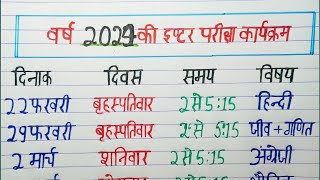 वर्ष 2024 की इण्टर परीक्षा कार्यक्रम
दिनाक दिवस समय विषय
22 फरवरी बृहस्पतिवार 2 से 5:15 हिन्दी
29 फरवरी बृहस्पतिवार 2 से 5:15 जीव + गणित
2 मार्च शनिवार 2 से 5:15 अंग्रेजी